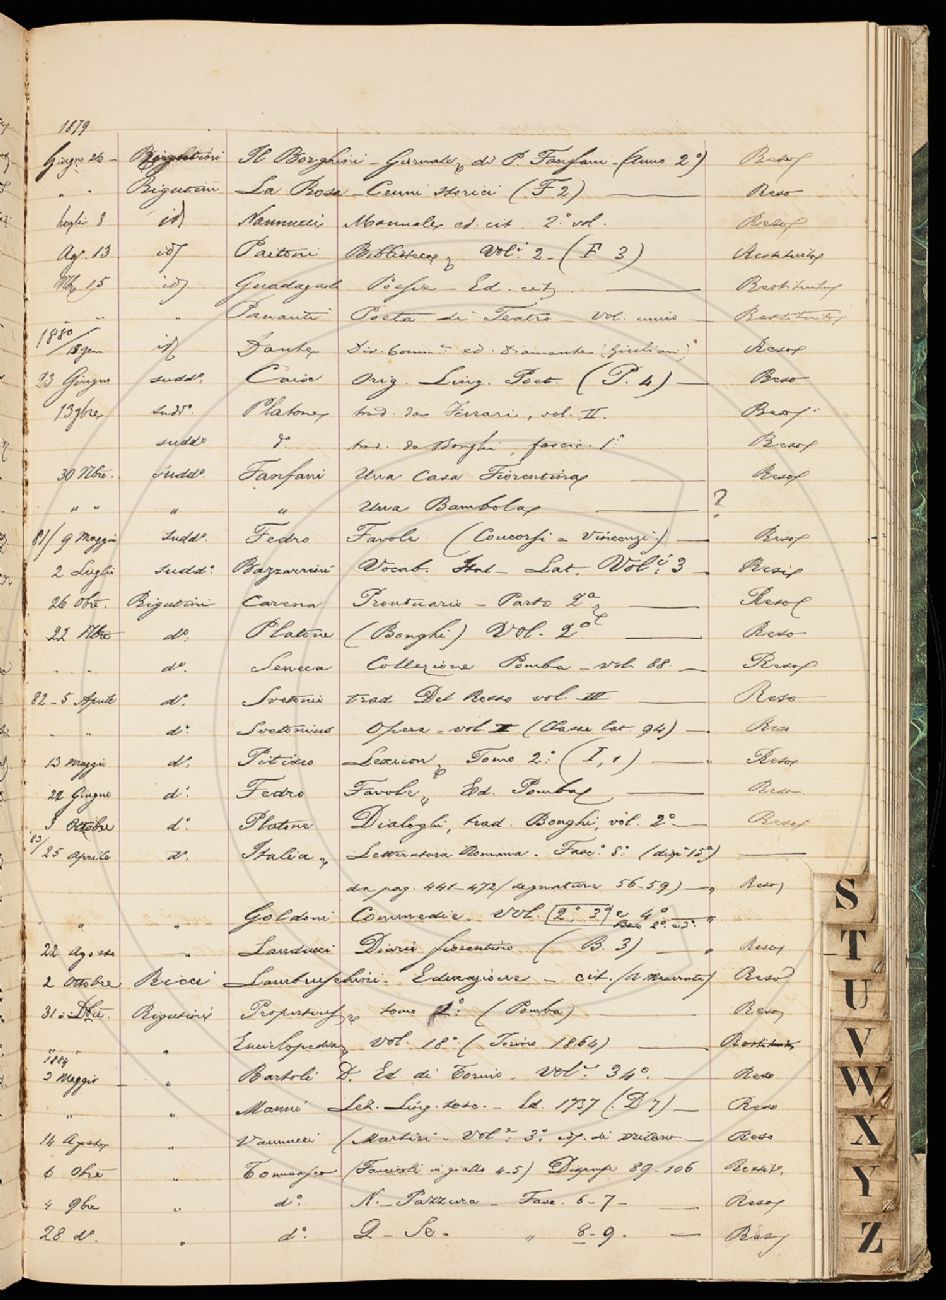 1879
Giugno 26 - Rigutini Il Borghini - Giornale di P. Fanfani - (Anno 2°) Reso
" " Rigutini La Rosa - Cenni storici (F 2) Reso
Luglio 8 id Nannucci Manuale ed. cit. 2° vol. Reso
Ago. 13 id Paitoni Biblioteca Vol. 2 - (F 3) Restituito
15 id Guadagnoli Poesie - Ed. cit. Restituito
" " " Pananti Poeta di Teatro vol. unico - Restituito
1880/ 18 gen id Dante Div. Comm. ed. Diamante (Giuliani) Reso
23 Giugno sudd°. Caix Orig. Ling. Poet. (P. 4) - Reso
13 9bre sudd°. Platone trad. da Ferrari, vol. II Reso
sudd° d° trad. da Bonghi, fascic. 1° Reso
30 Nbre. sudd°. Fanfani Una Casa Fiorentina Reso
" " " " Una Bambola ?
81/ 9 Maggio sudd°. Fedro Favole (Concorsi - Vincenzi) - Reso
2 Luglio sudd°. Bazzarini Vocab. Ital - Lat. Vol. 3 - Resi
26 Obre. Rigutini Carena Prontuario - Parte 2a Reso
22 Nbre d°. Platone (Bonghi) Vol. 2° Reso
" " d°. Seneca Collezione Pomba - vol. 88. - Reso
82 - 5 Aprile d°. Svetonio trad Del Rosso vol. III Reso
" " d°. Svetonius Opera - vol. II (Classe Lat. 94) - Reso
13 Maggio d°. Pitisco Lexicon, Tomo 2° (I, 1) Reso
22 Giugno d°. Fedro Favole, Ed. Pomba Reso
3 Ottobre d°. Platone Dialoghi, trad. Bonghi, vol. 2° - Reso
83/ 25 Aprile d°. Italia, Letteratura Romana - Fasc. 8° (disp. 15a)
da pag. 441-472 / segnature 56-59) - Reso
" " " Goldoni Commedie - Vol. 2° 3° e 4°
Reso 2° e 3°
22 Agosto " Landucci Diario fiorentino (B. 3) - Reso
2 Ottobre Ricci Lambruschini - Educazione - cit. Reso
31 - Dbre. Rigutini Propertius tomo 1° (Pomba) Reso
" " Enciclopedia Vol. 18° (Torino 1864) Restituito
1884
3 Maggio - " Bartoli D. Ed. di Torino - Vol. 34°. - Reso
" " Manni Lez. Ling. tosc. - Ed. 1737 (D 7) - Reso
14 Agosto " Vannucci (Martiri - Vol. 3°. ed. di Milano - Reso
6 Obre " Tommaseo (Fascicoli in giallo 4-5) Dispense 89-106 Restit.
4 9bre " d°. N. - Pazzura - Fasc. 6-7 - Reso
28 d°. " d°. Q - Se. " 8-9. - Reso
S
T
U
V
W
X
Y
Z